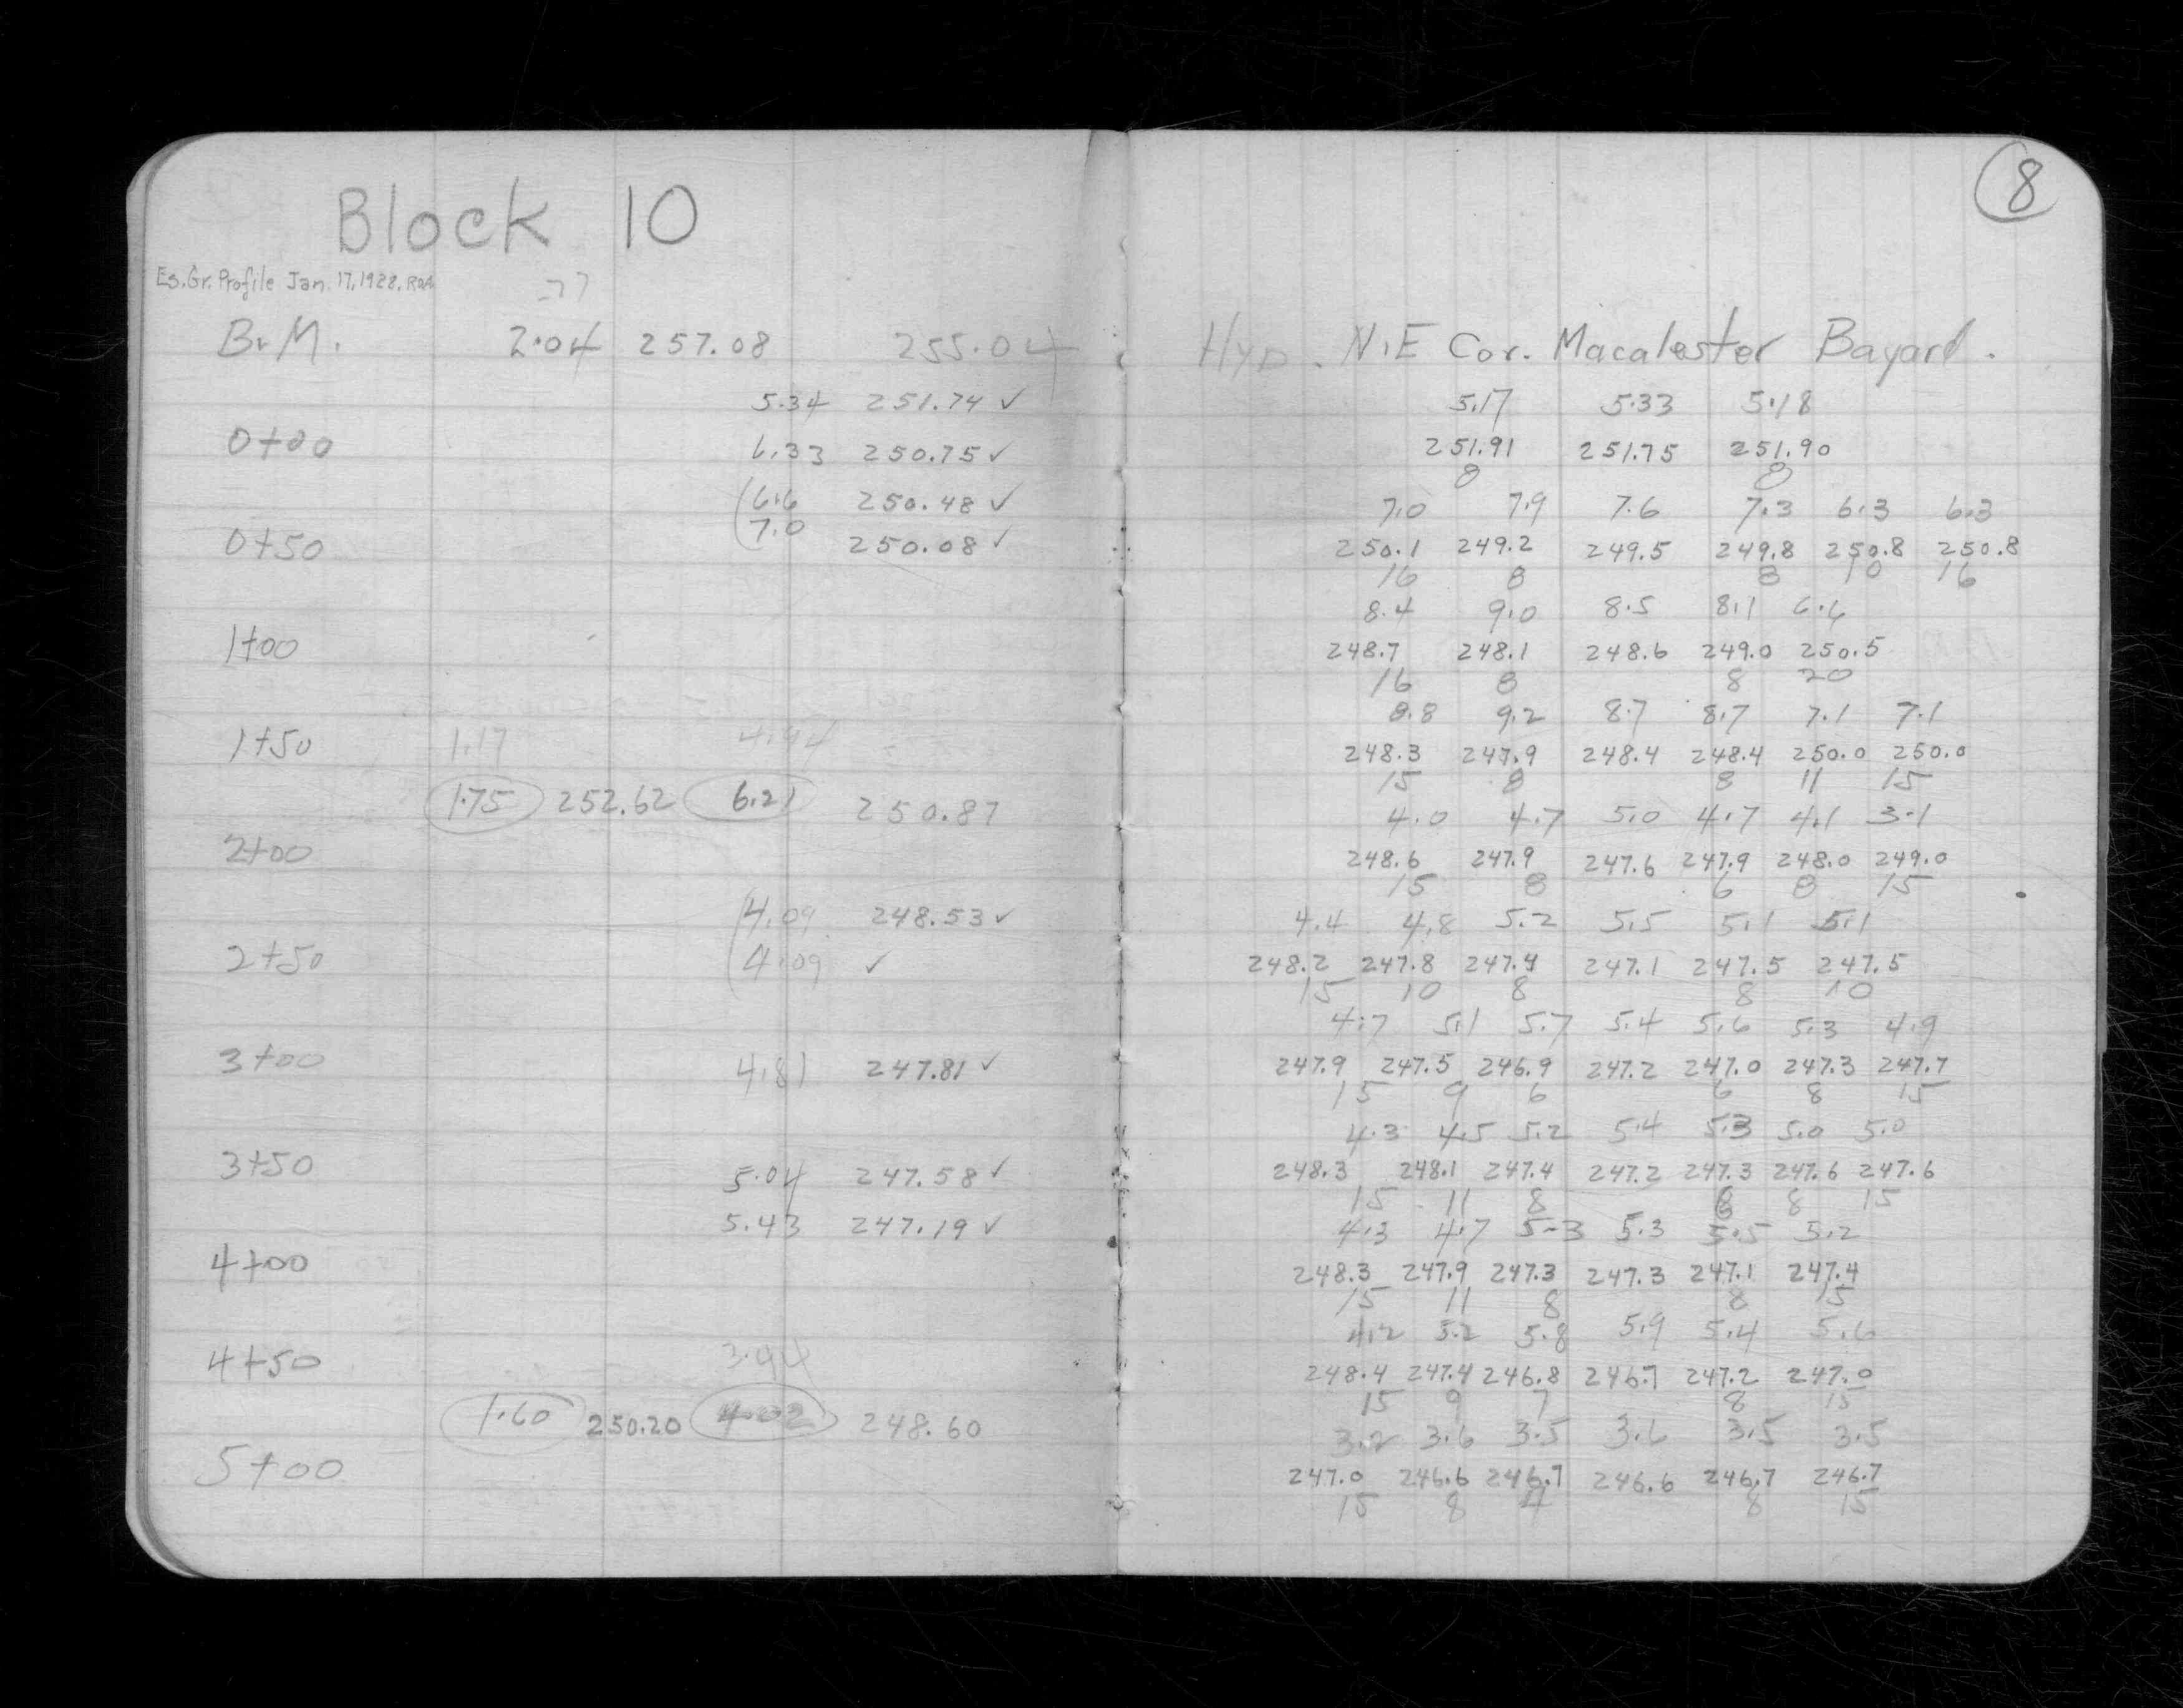 Block 10
8
Es.Gr. Profile Jan. 17, 1928. RQA
B.M. 2.04 257.08 255.04 Hyd. N.E Cor. Macalester Bayard.
5.34 251.74 ✓ 5.17 5.33 5.18
0+00 6.33 250.75 ✓ 251.91 251.75 251.90
8 8
(6.6 250.48 ✓ 7.0 7.9 7.6 7.3 6.3 6.3
0+50 (7.0 250.08 ✓ 250.1 249.2 249.5 249.8 250.8 250.8
16 8 8 10 16
8.4 9.0 8.5 8.1 6.6
1+00 248.7 248.1 248.6 249.0 250.5
16 8 8 20
8.8 9.2 8.7 8.7 7.1 7.1
1+50 1.17 4.94 248.3 247.9 248.4 248.4 250.0 250.0
15 8 8 11 15
1.75 252.62 6.21 250.87 4.0 4.7 5.0 4.7 4.1 3.1
2+00 248.6 247.9 247.6 247.9 248.0 249.0
15 8 6 8 15
(4.09 248.53 ✓ 4.4 4.8 5.2 5.5 5.1 5.1
2+50 (4.09 ✓ 248.2 247.8 247.4 247.1 247.5 247.5
15 10 8 8 10
4.7 5.1 5.7 5.4 5.6 5.3 4.9
3+00 4.81 247.81 ✓ 247.9 247.5 246.9 247.2 247.0 247.3 247.7
15 9 6 6 8 15
4.3 4.5 5.2 5.4 5.3 5.0 5.0
3+50 5.04 247.58 ✓ 248.3 248.1 247.4 247.2 247.3 247.6 247.6
15 11 8 8 15
5.43 247.19 ✓ 4.3 4.7 5.3 5.3 5.5 5.2
4+00 248.3 247.9 247.3 247.3 247.1 247.4
15 11 8 8 15
4.2 5.2 5.8 5.9 5.4 5.6
4+50 3.94 248.4 247.4 246.8 246.7 247.2 247.0
15 9 7 8 15
1.60 250.20 4.02 248.60 3.2 3.6 3.5 3.6 3.5 3.5
5+00 247.0 246.6 246.7 246.6 246.7 246.7
15 8 4 8 15